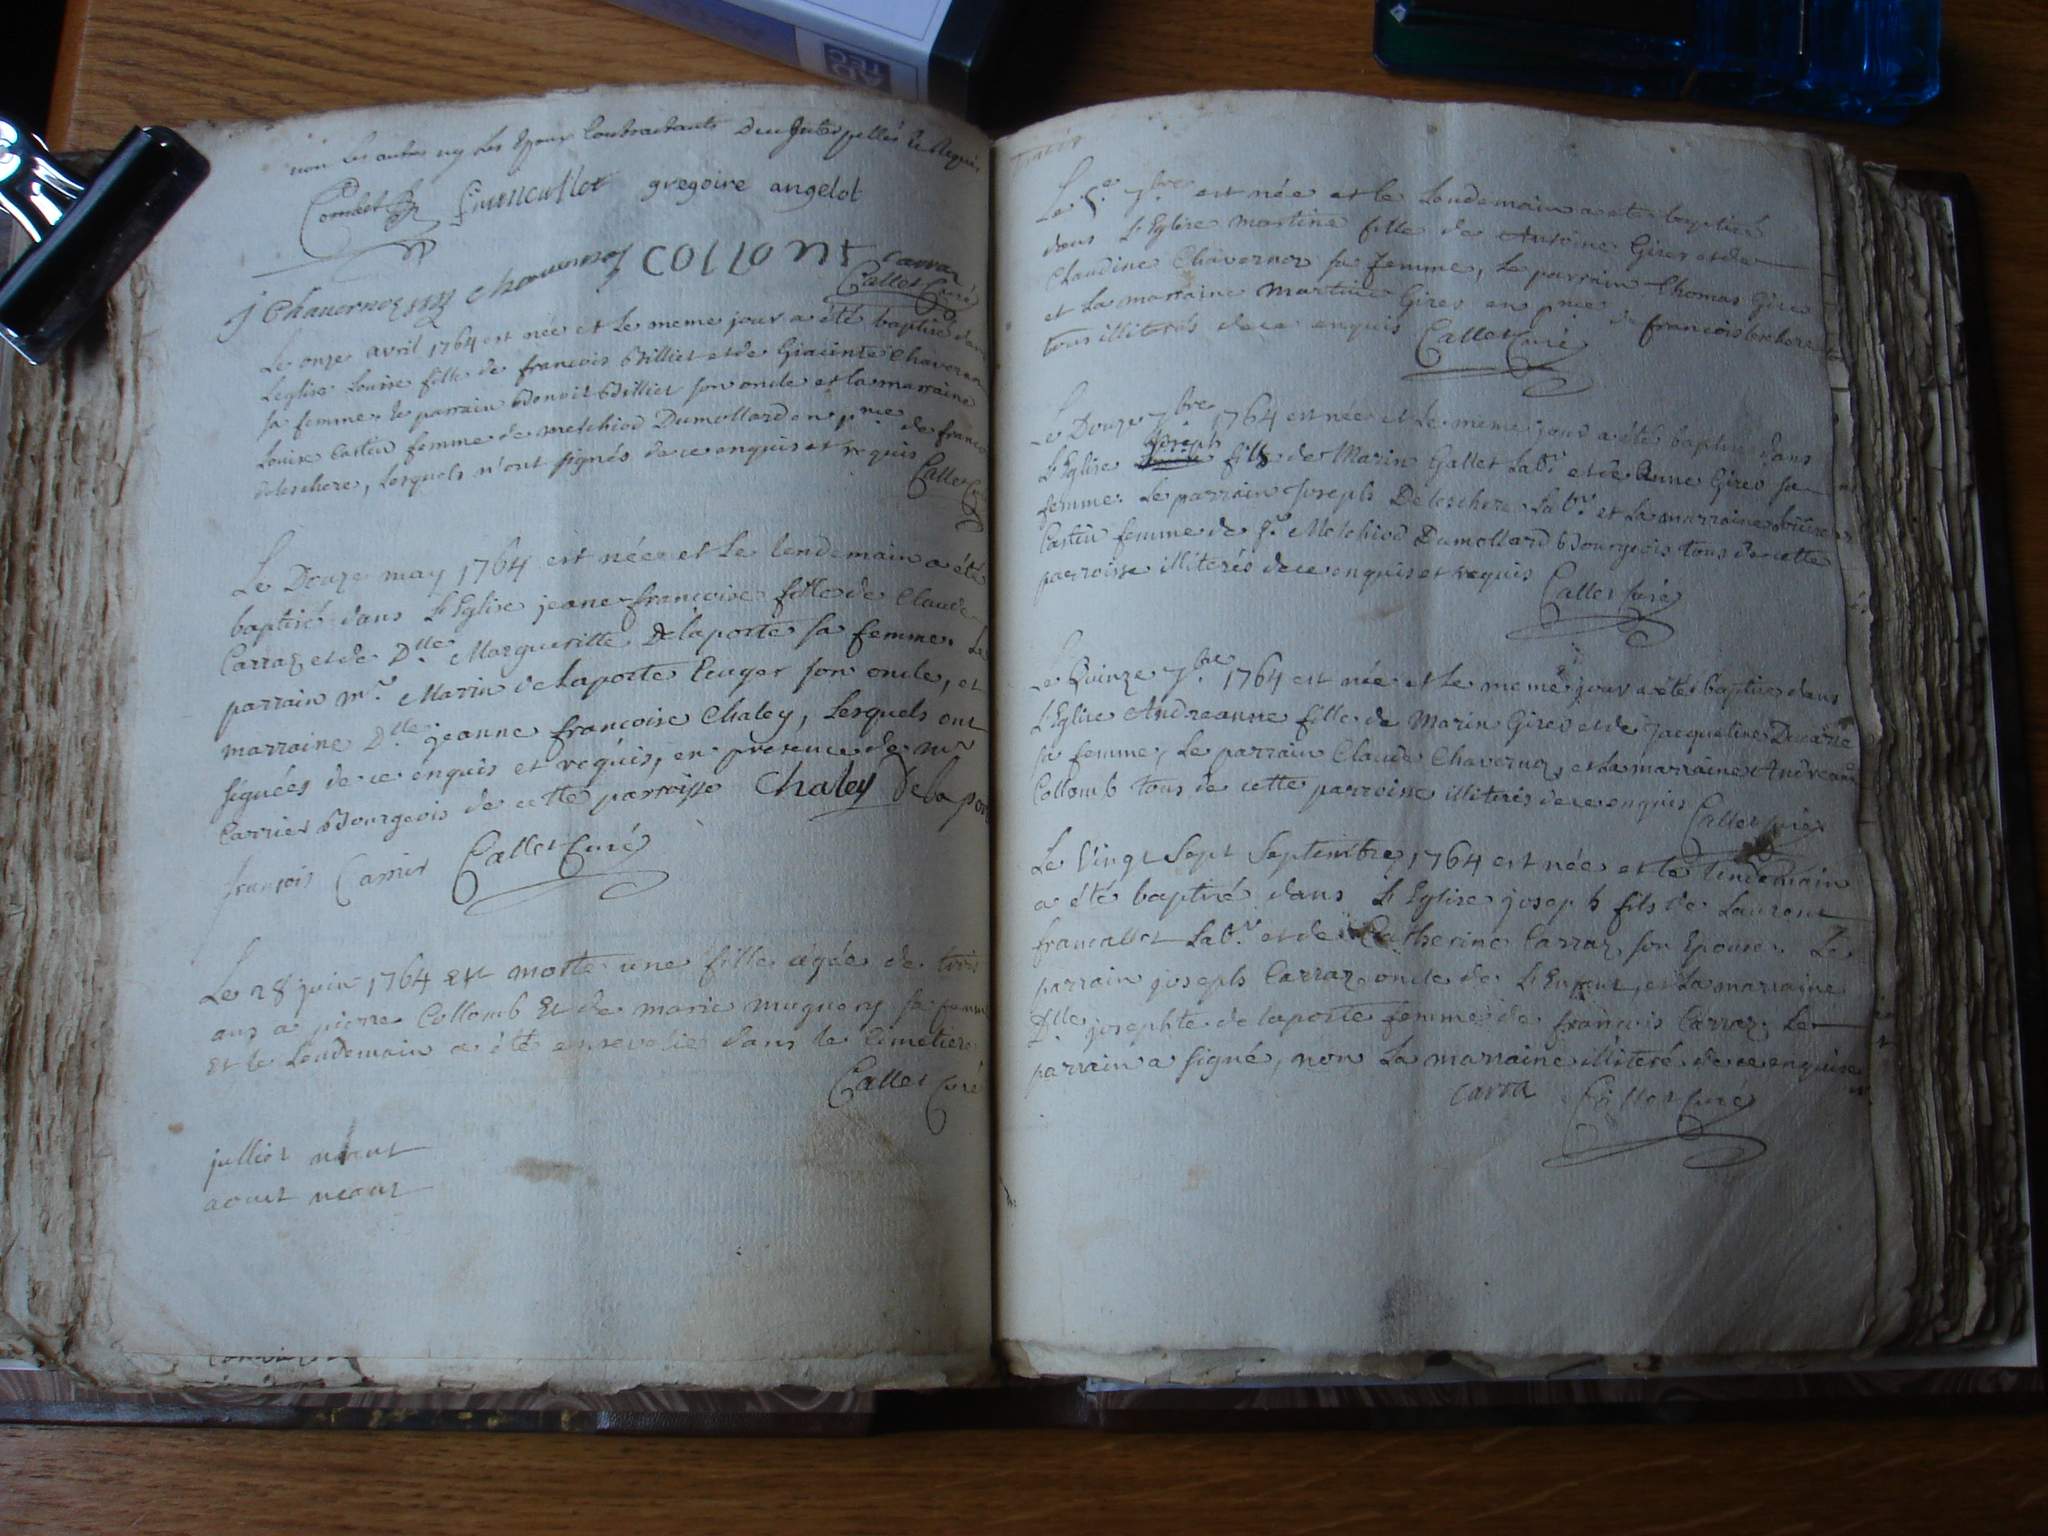 non les autres ny les Epoux Contractants Deue Interpellés et Requis
Combet francallet gregoire angelot
J Chavernoz Chavernoz COLLONT Carraz
Callet Curé
Le onze avril 1764 est née et le meme jour a été baptisé dans
leglise Louise fille de francois Billiet et de Giacinte Chavernoz
sa femme, le parrain Benoit Billiet son oncle et la marraine
Louise Castin femme de melchiod Dumollard en p.nce de francois
deleschere, lesquels n'ont signés de ce enquis et requis
Callet Curé
Le Douze may 1764 est née et Le lendemain a été
baptisé dans L'Eglise jeane-francoise fille de Claude
Carraz et de D.lle Margueritte Delaporte sa femme. Le
parrain m.r Marin de Laporte Ecuyer son oncle, et
marraine D.lle jeanne francoise Chaley, Lesquels ont
signées de ce enquis et requis, en presence de m.r
Carrier Bourgeois de cette parroisse Chaley De la por
francois Carrier Callet Curé
Le 28 juin 1764 est morte une fille agée de trois
ans a pierre Collomb Et de marie mugnery sa femme
et le Lendemain a été ensevelie dans le Cimetiere
Callet Curé
julliet néant
aoust neant
Le 5.e 7.bre est née et le Lendemain a été baptisé
dans L'Eglise martine fille de Antoine Girer et de
Claudine Chavernoz sa femme, Le parrain Thomas Girer
et La marraine Martine Girer en p.nce de francois
tous illiterés de ce enquis Callet Curé
Le Douze 7.bre 1764 est née et Le meme jour a été baptisé dans
L'Eglise joseph fils de Marin Gallet Lab.r et de Anne Girer sa
femme. Le parrain Joseph Deleschere Lab.r et La marraine Louise
Castin femme de S.r Melchiod Dumollard Bourgeois tous de cette
parroisse illiterés de ce enquis et requis
Callet Curé
Le Quinze 7.bre 1764 est née et Le meme jour a été baptisé dans
L'Eglise Andreanne fille de Marin Girer et de Jacqueline
sa femme, Le parrain Claude Chavernoz, et La marraine Andreanne
Collomb tous de cette parroisse illiterés de ce enquis
Callet Curé
Le Vingt Sept Septembre 1764 est née et le lendemain
a été baptisé dans L'Eglise joseph fils de Laurent
francallet Lab.r et de Catherine Carraz son Epouse. Le
parrain joseph Carraz oncle de L'Enfant, et La marraine
D.lle josephte de laporte femme de francois Carraz. Le
parrain a signé, non La marraine illiteré de ce enquise
carra Callet Curé